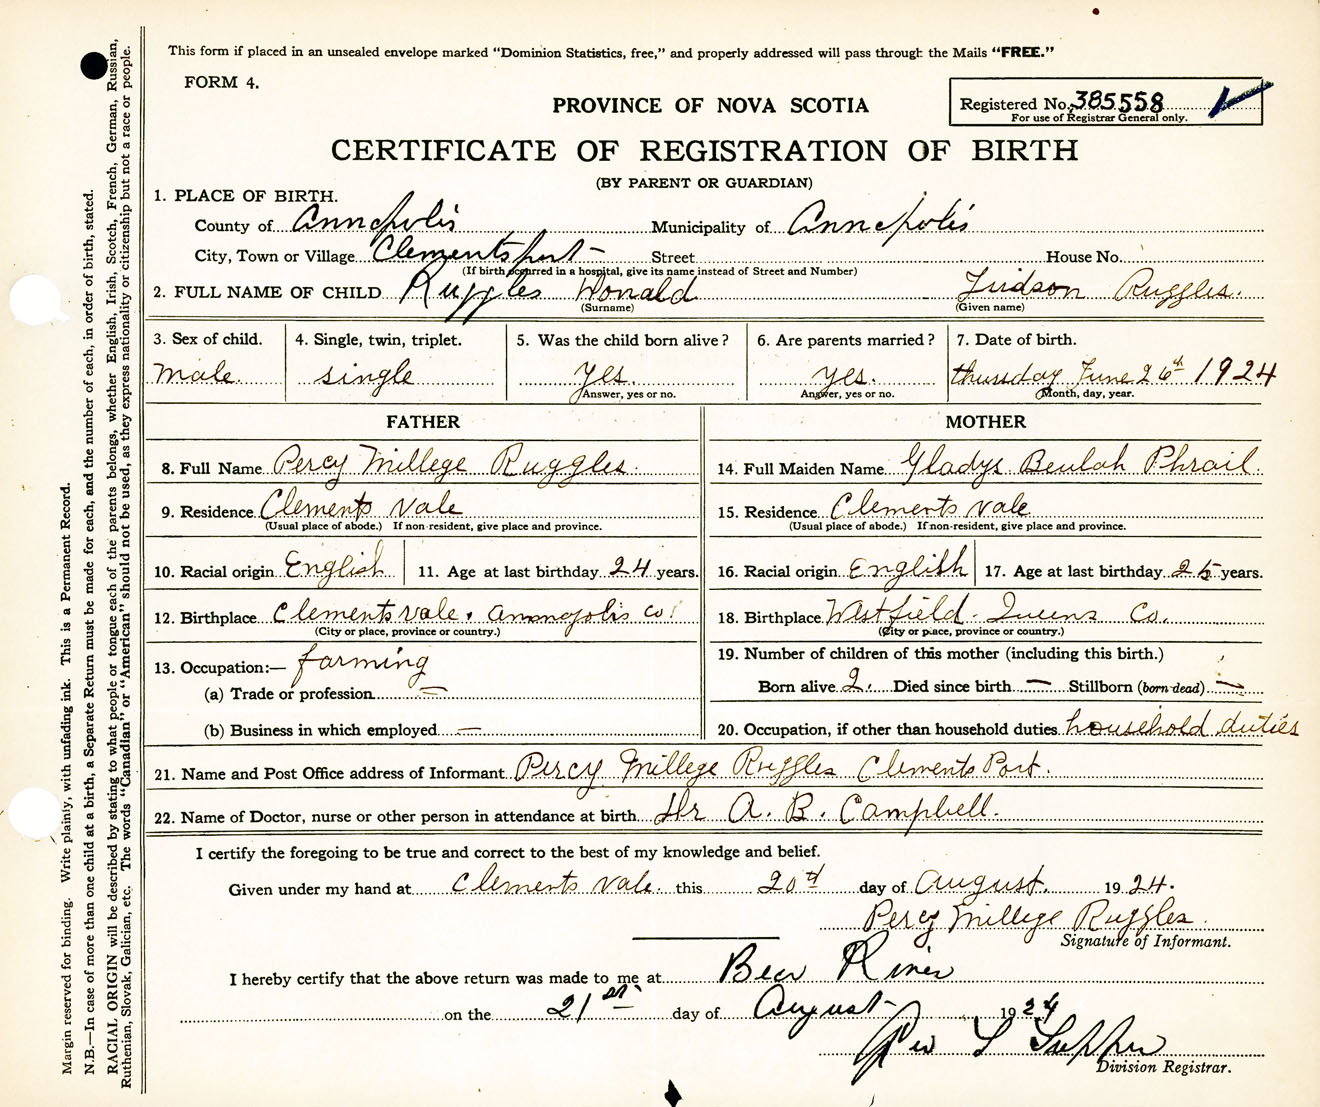 This form if placed in an unsealed envelope marked "Dominion Statistics, free," and properly addressed will pass through the Mails "FREE."
FORM 4.
PROVINCE OF NOVA SCOTIA
Registered No. 385558
For use of Registrar General only.
CERTIFICATE OF REGISTRATION OF BIRTH
(BY PARENT OR GUARDIAN)
1. PLACE OF BIRTH.
County of Annapolis Municipality of Annapolis
City, Town or Village Clementsport - Street House No.
(If birth occurred in a hospital, give its name instead of Street and Number)
2. FULL NAME OF CHILD Ruggles Donald Judson Ruggles.
(Surname) (Given name)
3. Sex of child. 4. Single, twin, triplet. 5. Was the child born alive? 6. Are parents married? 7. Date of birth.
male. single yes. yes. thursday June 26th 1924
Answer, yes or no. Answer, yes or no. (Month, day, year.
FATHER MOTHER
8. Full Name Percy Millege Ruggles. 14. Full Maiden Name Gladys Beulah Phrail
9. Residence Clements Vale 15. Residence Clements vale
(Usual place of abode.) If non-resident, give place and province. (Usual place of abode.) If non-resident, give place and province.
10. Racial origin English 11. Age at last birthday 24 years. 16. Racial origin English 17. Age at last birthday 25 years.
12. Birthplace Clementsvale. Annapolis co. 18. Birthplace Westfield - Queens Co.
(City or place, province or country.) (City or place, province or country.)
13. Occupation:— farming 19. Number of children of this mother (including this birth.)
(a) Trade or profession — Born alive 2. Died since birth — Stillborn (born dead) —
(b) Business in which employed — 20. Occupation, if other than household duties household duties
21. Name and Post Office address of Informant Percy Millege Ruggles Clements Port.
22. Name of Doctor, nurse or other person in attendance at birth Dr A. B. Campbell.
I certify the foregoing to be true and correct to the best of my knowledge and belief.
Given under my hand at Clements Vale. this 20th day of August. 1924.
Percy Millege Ruggles.
Signature of Informant.
I hereby certify that the above return was made to me at Bear River
on the 21st day of August 1924
Division Registrar.
Margin reserved for binding. Write plainly, with unfading ink. This is a Permanent Record.
N.B.—In case of more than one child at a birth, a Separate Return must be made for each, and the number of each, in order of birth, stated.
RACIAL ORIGIN will be described by stating to what people or tongue each of the parents belongs, whether English, Irish, Scotch, French, German, Russian,
Ruthenian, Slovak, Galician, etc. The words "Canadian" or "American" should not be used, as they express nationality or citizenship but not a race or people.